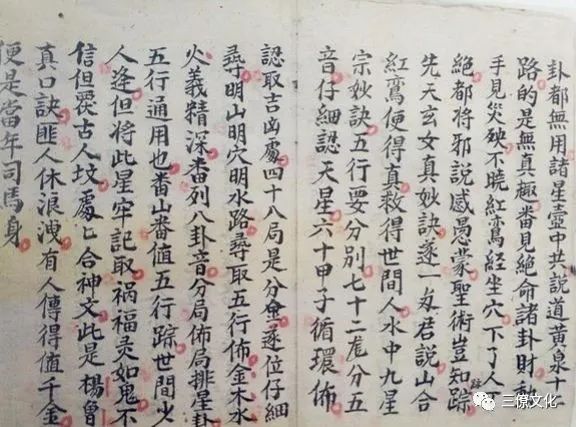 卦都無用諸星壼中共説道黄泉十二
路的是無真趣畨見絶命諸卦財
手見災殃不曉紅鸞経坐穴下了人
絶都将邪説惑愚蒙聖術豈知踪
跡
先天玄女真妙訣遂一为君説山合
紅鸞便得真救得世間人水中九星
宗妙訣五行要分别七十二龙分五
音仔細認天星六十甲子循環佈
認取吉凶處四十八局是分金遂位仔細
尋明山明穴明水路尋取五行佈金木水
火義精深畨列八卦音分局佈局排星卦
五行通用也畨山畨值五行踪世間少
人逢但将此星牢記取祸福灵如鬼不
信但覆古人坟處〻合神文此是楊曾
真口訣匪人休浪洩有人傳得值千金
便是當年司馬身
三僚文化